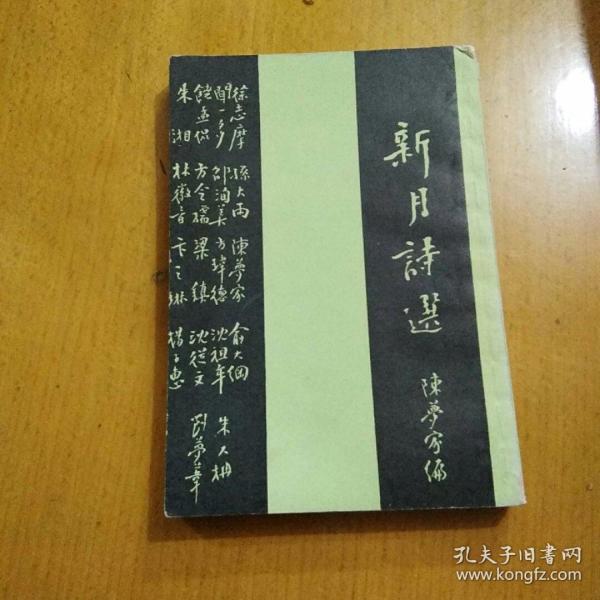 新月詩選
陳夢家編
徐志摩 孫大雨 陳夢家 俞大綱 朱大枬
聞一多 邵洵美 方瑋德 沈祖牟
饒孟侃 方令孺 梁鎮 沈從文 劉夢葦
朱湘 林徽音 卞之琳 楊子惠
孔夫子旧书网
www.kongfz.com